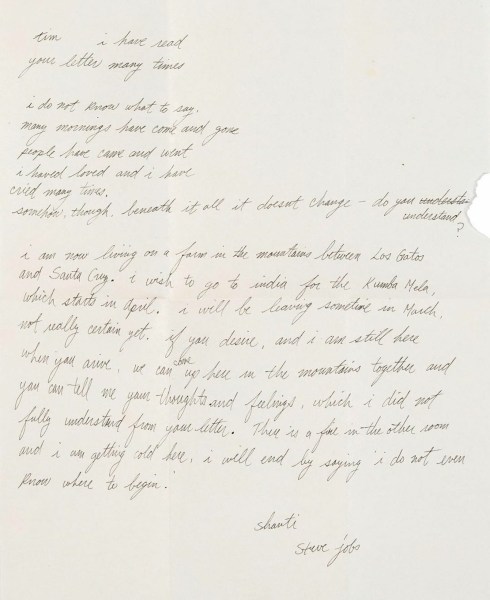 tim i have read
your letter many times
i do not know what to say.
many mornings have come and gone
people have came and went
i haved loved and i have
cried many tives.
somehow, though, beneath it all it doesnt change - do you understa
understand
?
i am now living on a farm in the mountains between Los Gatos
and Santa Cruz. i wish to go to india for the Kumba Mela,
which starts in April. i will be leaving sometime in March,
not really certain yet. if you desire, and i am still here
when you arive, we can come up here in the mountains together and
you can tell me your thoughts and feelings, which i did not
fully understand from your letter. There is a fire in the other room
and i am getting cold here, i will end by saying 'i do not even
know where to begin.'
shanti
steve jobs